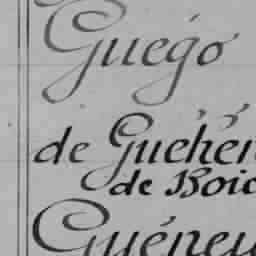 Guégo
de Guéhen
de Boic
Guéneu